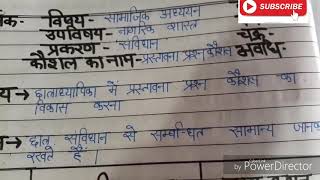 SUBSCRIBE
विषय- सामाजिक अध्ययन
उपविषय- नागरिक शास्त्र
प्रकरण- संविधान
कौशल का नाम- प्रस्तावना प्रश्न कौशल अवधि-
य→ छात्राध्यापिका में प्रस्तावना प्रश्न कौशल का
विकास करना
छात्र संविधान से सम्बन्धित सामान्य जानक
रखते हैं।
by PowerDirector